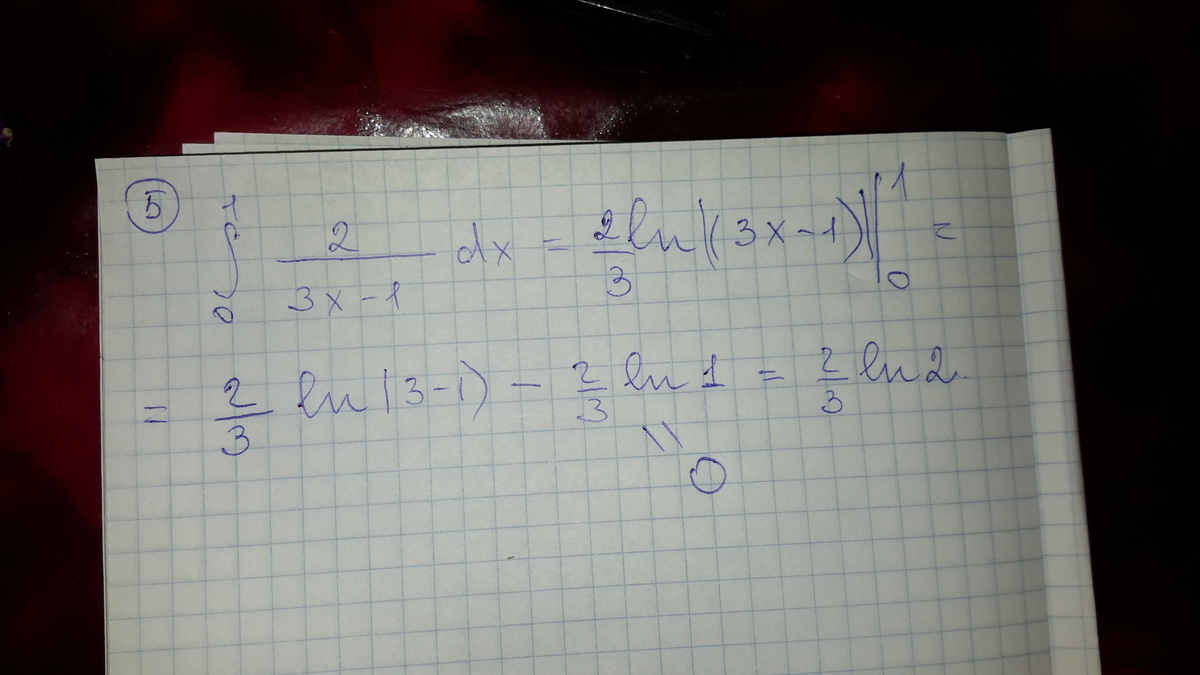 ⑤ ∫₀¹ 2/(3x-1) dx = 2/3 ln|(3x-1)||₀¹ =
= 2/3 ln(3-1) - 2/3 ln 1 = 2/3 ln 2.
\\
0